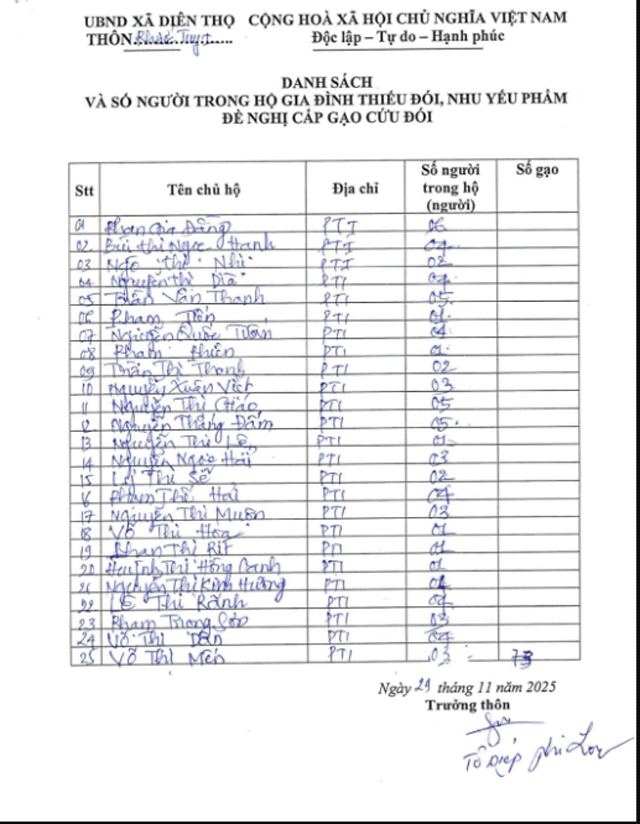 UBND XÃ DIÊN THỌ CỘNG HOÀ XÃ HỘI CHỦ NGHĨA VIỆT NAM
THÔN Phước Tuy 1 Độc lập – Tự do – Hạnh phúc
DANH SÁCH
VÀ SỐ NGƯỜI TRONG HỘ GIA ĐÌNH THIẾU ĐÓI, NHU YẾU PHẨM
ĐỀ NGHỊ CẤP GẠO CỨU ĐÓI
Stt Tên chủ hộ Địa chỉ Số người trong hộ (người) Số gạo
01 Phan Gia Đằng PTI 06
02 Bùi Thị Ngọc Hanh PTI 04
03 Ngô Thị Nhì PTI 02
04 Nguyễn Thị PTI 04
05 Trần Văn Thanh PTI 05
06 Phạm Tiến PTI 01
07 Nguyễn Quốc Tuấn PTI 04
08 Phạm PTI 01
09 Trần Thị Thanh PTI 02
10 Nguyễn Xuân Việt PTI 03
11 Nguyễn Thị PTI 05
12 Nguyễn Thắng Đấm PTI 05
13 Nguyễn Thị Lê PTI 01
14 Nguyễn Ngọc Hải PTI 03
15 Thị Sẽ PTI 02
16 Phạm Hai PTI 04
17 Nguyễn Thị Muôn PTI 03
18 Võ Thị Hòa PTI 01
19 Phan Thị Rít PTI 01
20 Huỳnh Thị Hồng Oanh PTI 01
21 Nguyễn Thị Kim Hường PTI
22 Lê Thị Rãnh PTI 04
23 Phạm Trọng PTI 03
24 Võ Thị Dần PTI 04
25 Võ Thị Mến PTI 03 73
Ngày 29 tháng 11 năm 2025
Trưởng thôn
Tô Diệp Phi